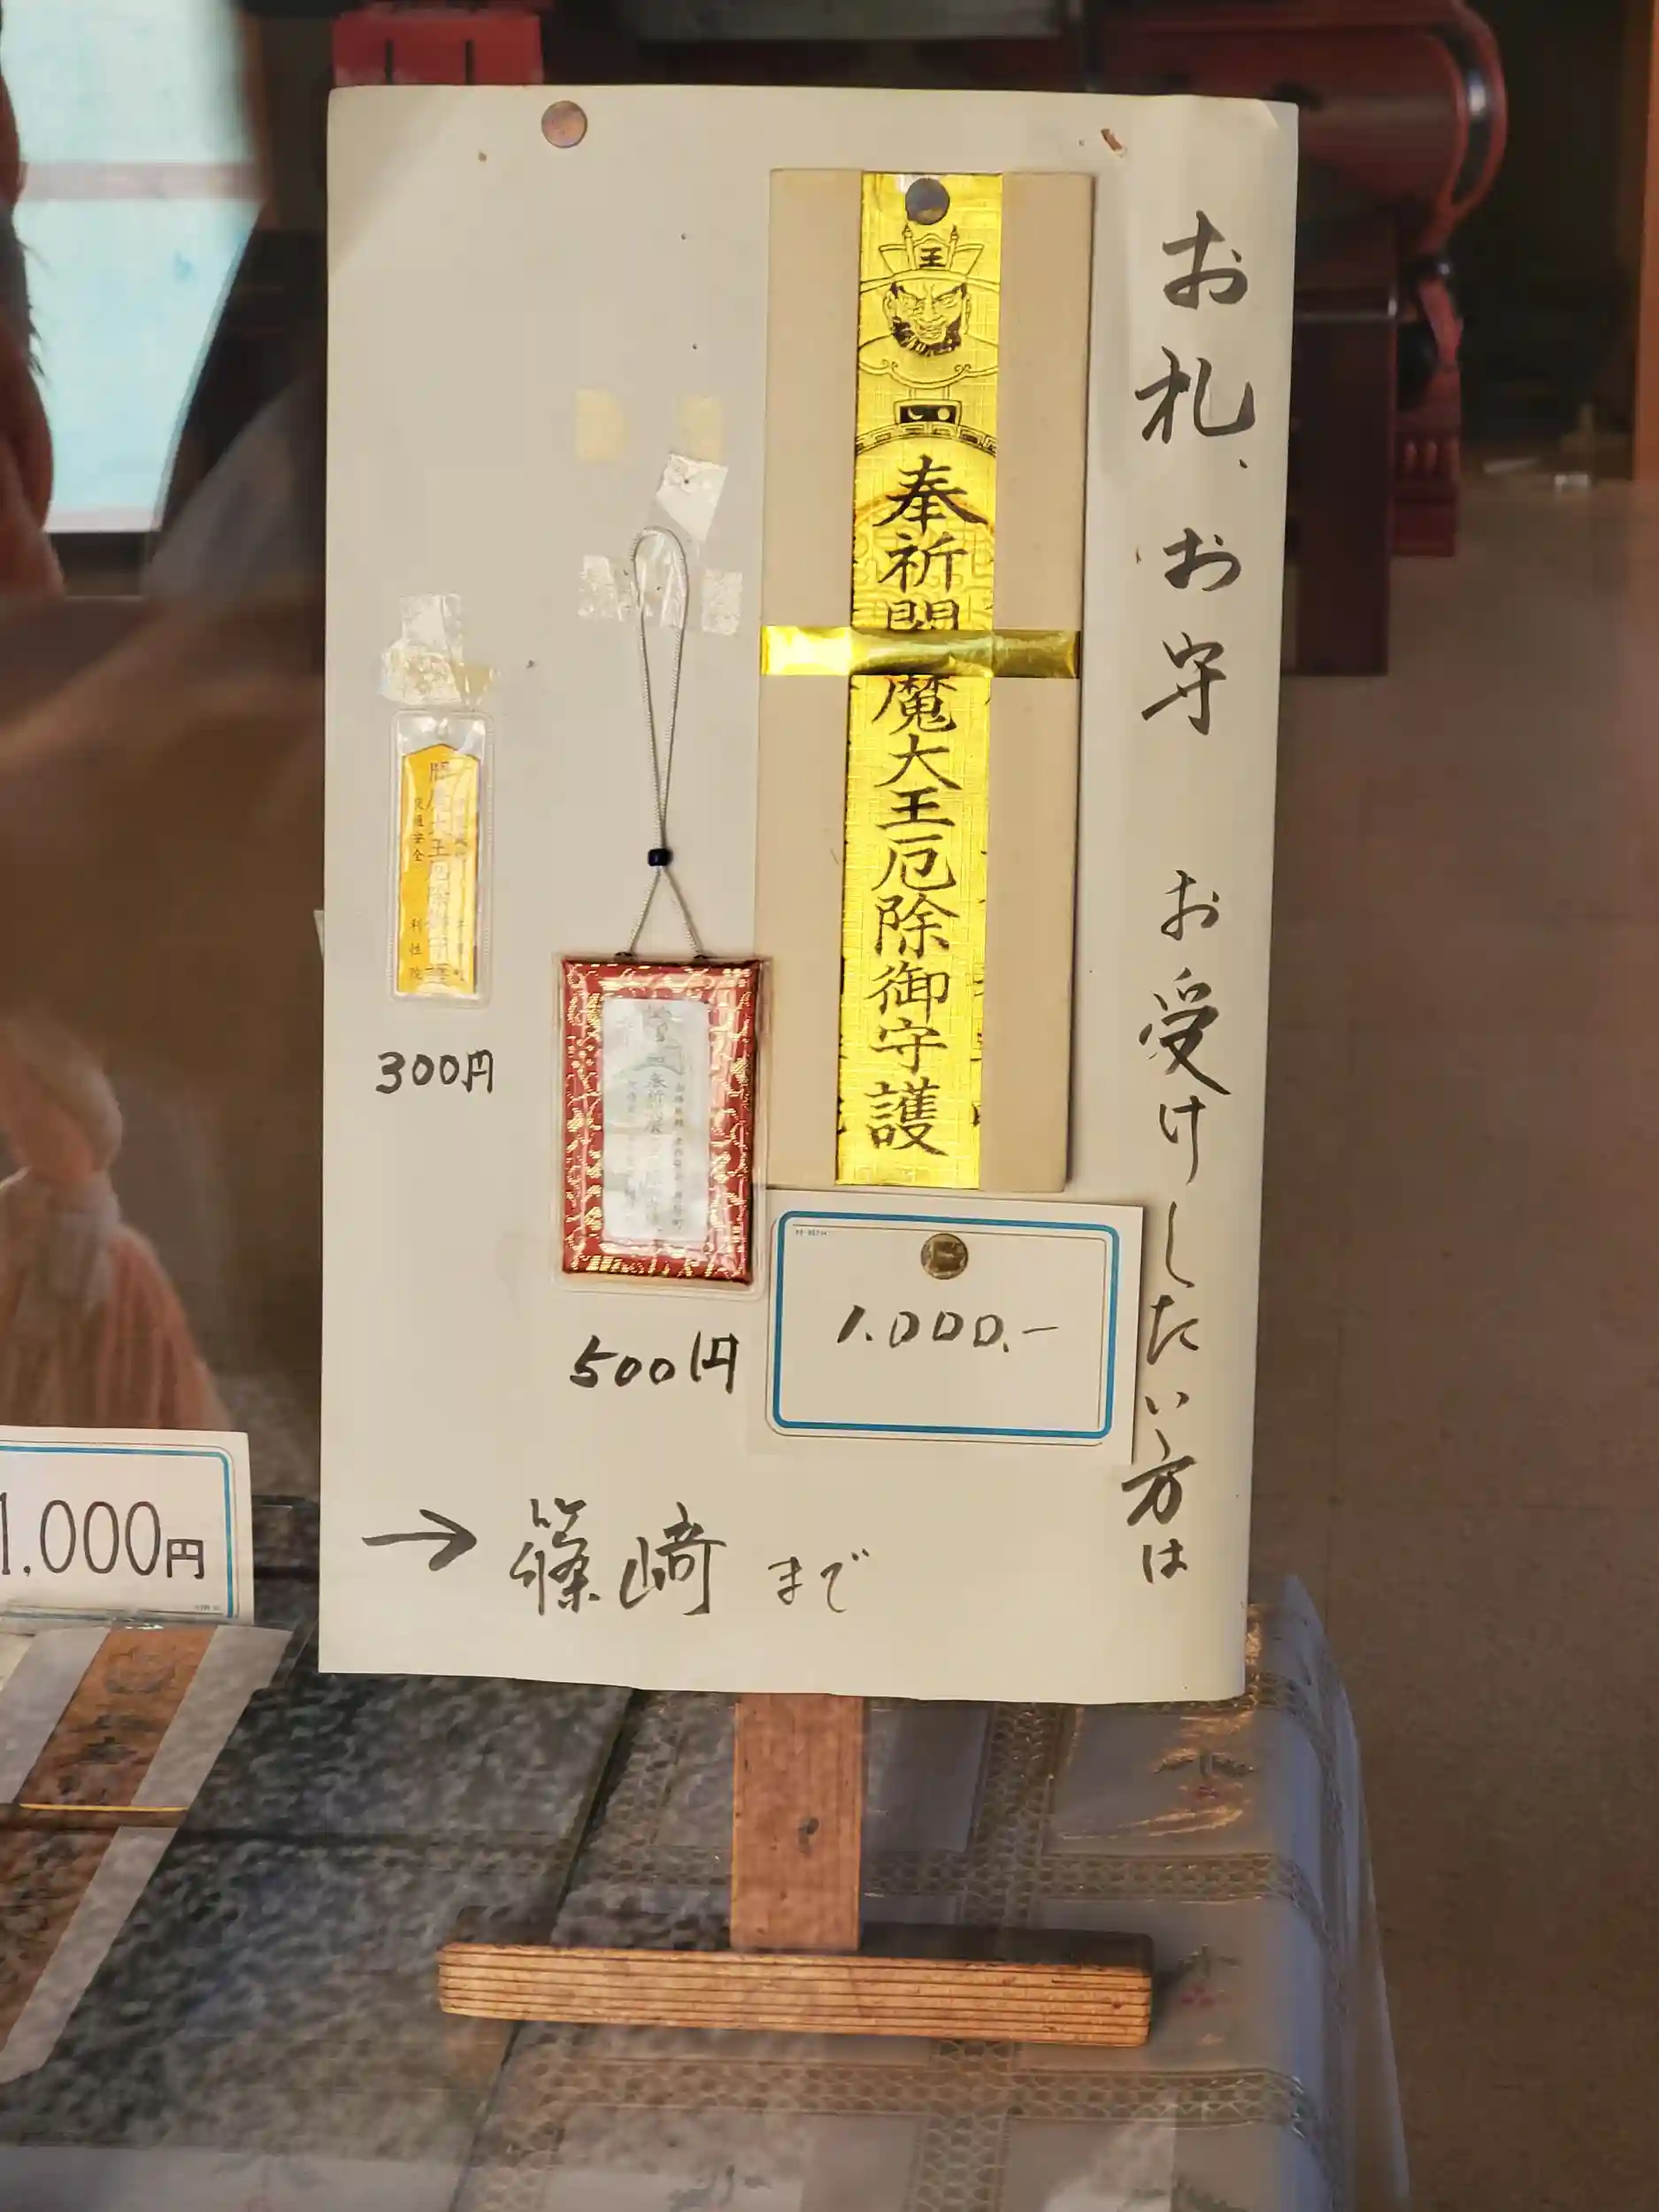 お札、お守 お受けしたい方は
王
奉祈閻魔大王厄除御守護
1.000.-
500円
300円
閻魔大王厄除御守護
交通安全 利性院
→ 篠崎 まで
1.000円